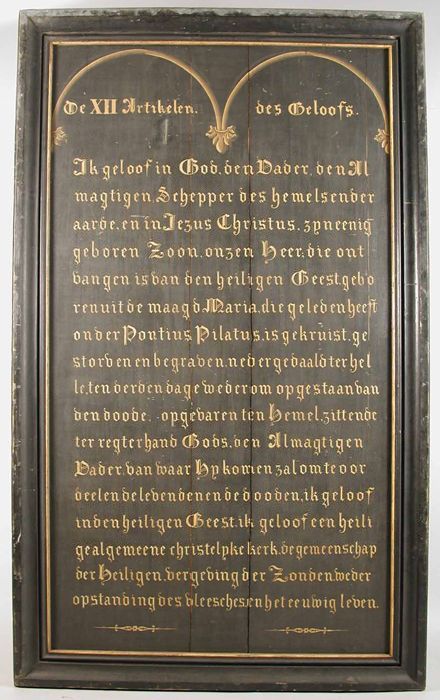 De XII Artikelen. des Geloofs.
Ik geloof in God, den Vader, den Al
magtigen, Schepper des hemels en der
aarde, en in Jezus Christus, zyn eenig
geboren Zoon, onzen Heer, die ont
vangen is van den heiligen Geest, gebo
ren uit de maagd Maria, die geleden heeft
onder Pontius Pilatus, is gekruist, ge
storven en begraven, nedergedaald ter hel
le, ten derden dage wederom opgestaan van
den doode, opgevaren ten Hemel, zittende
ter regterhand Gods, den Almagtigen
Vader, van waar Hy komen zal om te oor
deelen de levenden en de dooden, ik geloof
in den heiligen Geest, ik geloof een heili
ge algemeene christelyke kerk, de gemeenschap
der Heiligen, vergeving der Zonden, weder
opstanding des vleesches, en het eeuwig leven.